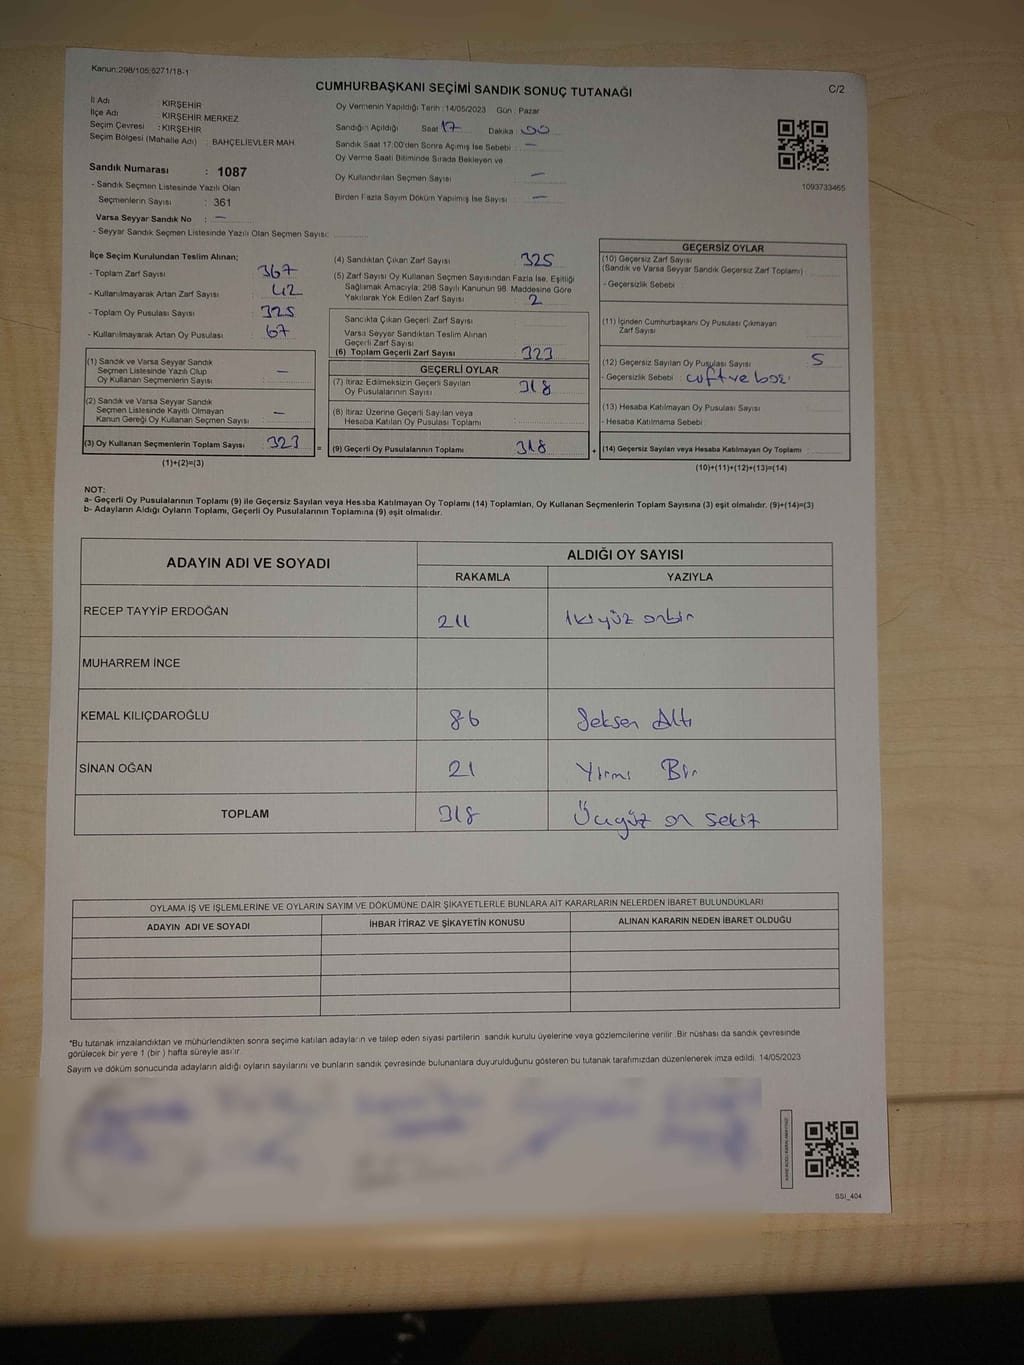 Kanun:298/105;6271/18-1
CUMHURBAŞKANI SEÇİMİ SANDIK SONUÇ TUTANAĞI
C/2
İl Adı : KIRŞEHİR
İlçe Adı : KIRŞEHİR MERKEZ
Seçim Çevresi : KIRŞEHİR
Seçim Bölgesi (Mahalle Adı) : BAHÇELİEVLER MAH.
Sandık Numarası : 1087
- Sandık Seçmen Listesinde Yazılı Olan
Seçmenlerin Sayısı : 361
Varsa Seyyar Sandık No : —
- Seyyar Sandık Seçmen Listesinde Yazılı Olan Seçmen Sayısı:
Oy Vermenin Yapıldığı Tarih : 14/05/2023 Gün : Pazar
Sandığın Açıldığı Saat 17 Dakika 00
Sandık Saat 17:00'den Sonra Açımış İse Sebebi : —
Oy Verme Saati Bitiminde Sırada Bekleyen ve
Oy Kullandırılan Seçmen Sayısı : —
Birden Fazla Sayım Döküm Yapılmış İse Sayısı : —
1093733465
İlçe Seçim Kurulundan Teslim Alınan:
- Toplam Zarf Sayısı : 367
- Kullanılmayarak Artan Zarf Sayısı : 42
- Toplam Oy Pusulası Sayısı : 325
- Kullanılmayarak Artan Oy Pusulası : 67
(1) Sandık ve Varsa Seyyar Sandık
Seçmen Listesinde Yazılı Olup
Oy Kullanan Seçmenlerin Sayısı : —
(2) Sandık ve Varsa Seyyar Sandık
Seçmen Listesinde Kayıtlı Olmayan
Kanun Gereği Oy Kullanan Seçmen Sayısı : —
(3) Oy Kullanan Seçmenlerin Toplam Sayısı 323 =
(1)+(2)=(3)
(4) Sandıktan Çıkan Zarf Sayısı : 325
(5) Zarf Sayısı Oy Kullanan Seçmen Sayısından Fazla İse, Eşitliği
Sağlamak Amacıyla; 298 Sayılı Kanunun 98. Maddesine Göre
Yakılarak Yok Edilen Zarf Sayısı : 2
Sandıkta Çıkan Geçerli Zarf Sayısı :
Varsa Seyyar Sandıktan Teslim Alınan
Geçerli Zarf Sayısı :
(6) Toplam Geçerli Zarf Sayısı : 323
GEÇERLİ OYLAR
(7) İtiraz Edilmeksizin Geçerli Sayılan
Oy Pusulalarının Sayısı : 318
(8) İtiraz Üzerine Geçerli Sayılan veya
Hesaba Katılan Oy Pusulası Toplamı :
(9) Geçerli Oy Pusulalarının Toplamı : 318 +
GEÇERSİZ OYLAR
(10) Geçersiz Zarf Sayısı
(Sandık ve Varsa Seyyar Sandık Geçersiz Zarf Toplamı)
- Geçersizlik Sebebi :
(11) İçinden Cumhurbaşkanı Oy Pusulası Çıkmayan
Zarf Sayısı
(12) Geçersiz Sayılan Oy Pusulası Sayısı : 5
- Geçersizlik Sebebi :
(13) Hesaba Katılmayan Oy Pusulası Sayısı :
- Hesaba Katılmama Sebebi :
(14) Geçersiz Sayılan veya Hesaba Katılmayan Oy Toplamı :
(10)+(11)+(12)+(13)=(14)
NOT:
a- Geçerli Oy Pusulalarının Toplamı (9) ile Geçersiz Sayılan veya Hesaba Katılmayan Oy Toplamı (14) Toplamları, Oy Kullanan Seçmenlerin Toplam Sayısına (3) eşit olmalıdır. (9)+(14)=(3)
b- Adayların Aldığı Oyların Toplamı, Geçerli Oy Pusulalarının Toplamına (9) eşit olmalıdır.
ADAYIN ADI VE SOYADI
ALDIĞI OY SAYISI
RAKAMLA YAZIYLA
RECEP TAYYİP ERDOĞAN 211 İkiyüz onbir
MUHARREM İNCE
KEMAL KILIÇDAROĞLU 86 Seksen Altı
SİNAN OĞAN 21 Yirmi Bir
TOPLAM 318 Üçyüz on sekiz
OYLAMA İŞ VE İŞLEMLERİNE VE OYLARIN SAYIM VE DÖKÜMÜNE DAİR ŞİKAYETLERLE BUNLARA AİT KARARLARIN NELERDEN İBARET BULUNDUKLARI
ADAYIN ADI VE SOYADI İHBAR İTİRAZ VE ŞİKAYETİN KONUSU ALINAN KARARIN NEDEN İBARET OLDUĞU
*Bu tutanak imzalandıktan ve mühürlendikten sonra seçime katılan adayların ve talep eden siyasi partilerin sandık kurulu üyelerine veya gözlemcilerine verilir. Bir nüshası da sandık çevresinde
görülecek bir yere 1 (bir ) hafta süreyle asılır.
Sayım ve döküm sonucunda adayların aldığı oyların sayılarını ve bunların sandık çevresinde bulunanlara duyurulduğunu gösteren bu tutanak tarafımızdan düzenlenerek imza edildi. 14/05/2023
SSİ_404